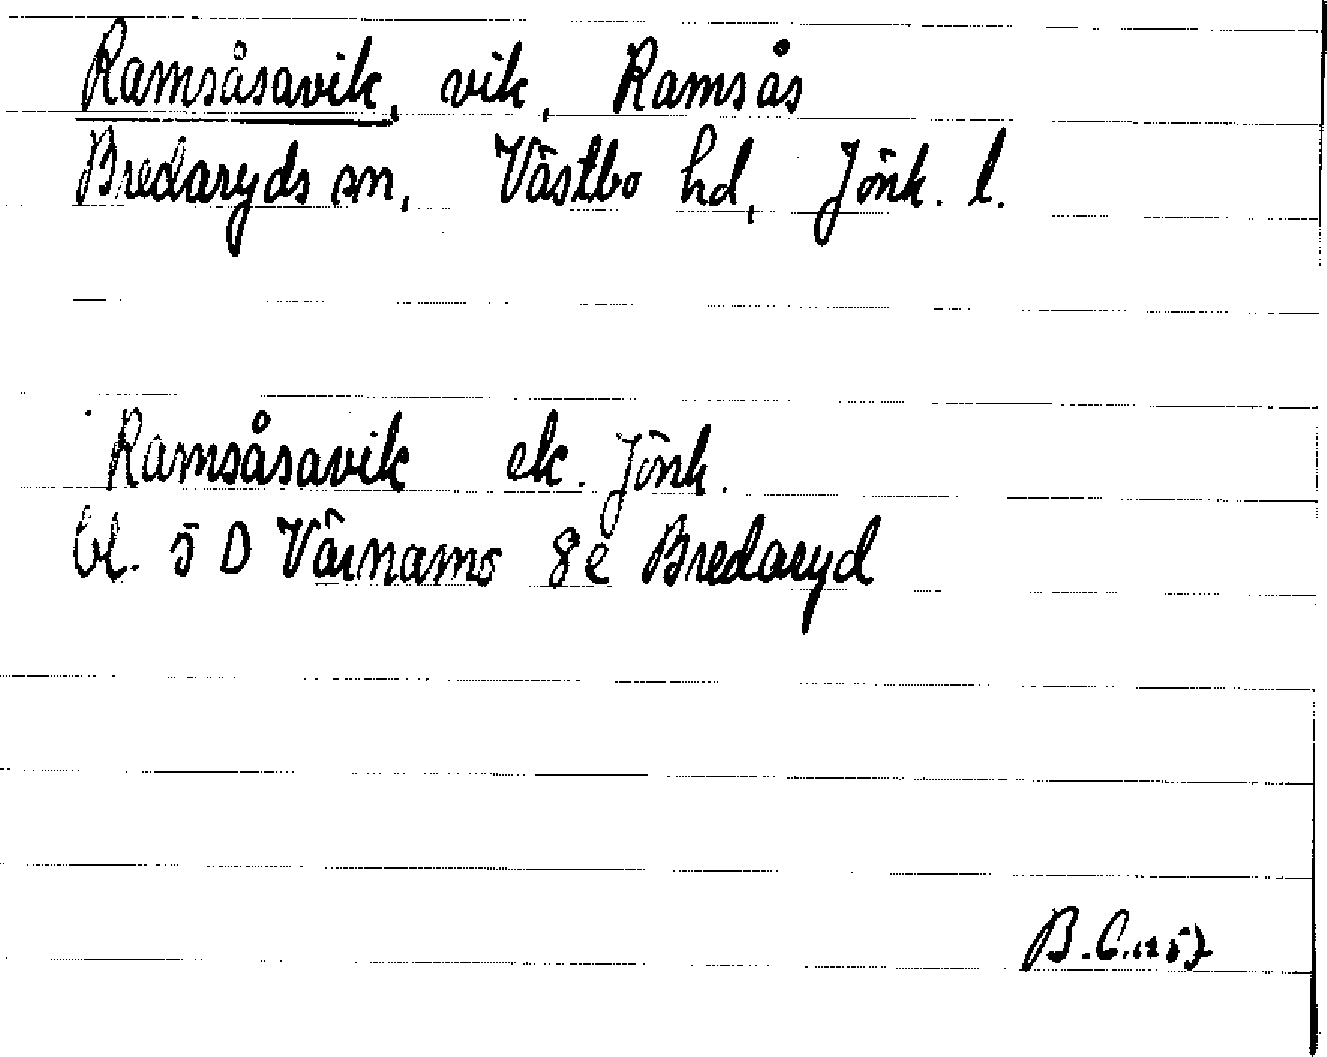 Ramsåsavik, vik, Ramsås
Bredaryds sn, Västbo hd, Jönk. l.
Ramsåsavik ek. Jönk.
bl. 5 D Värnamo 8e Bredaryd
B.C.